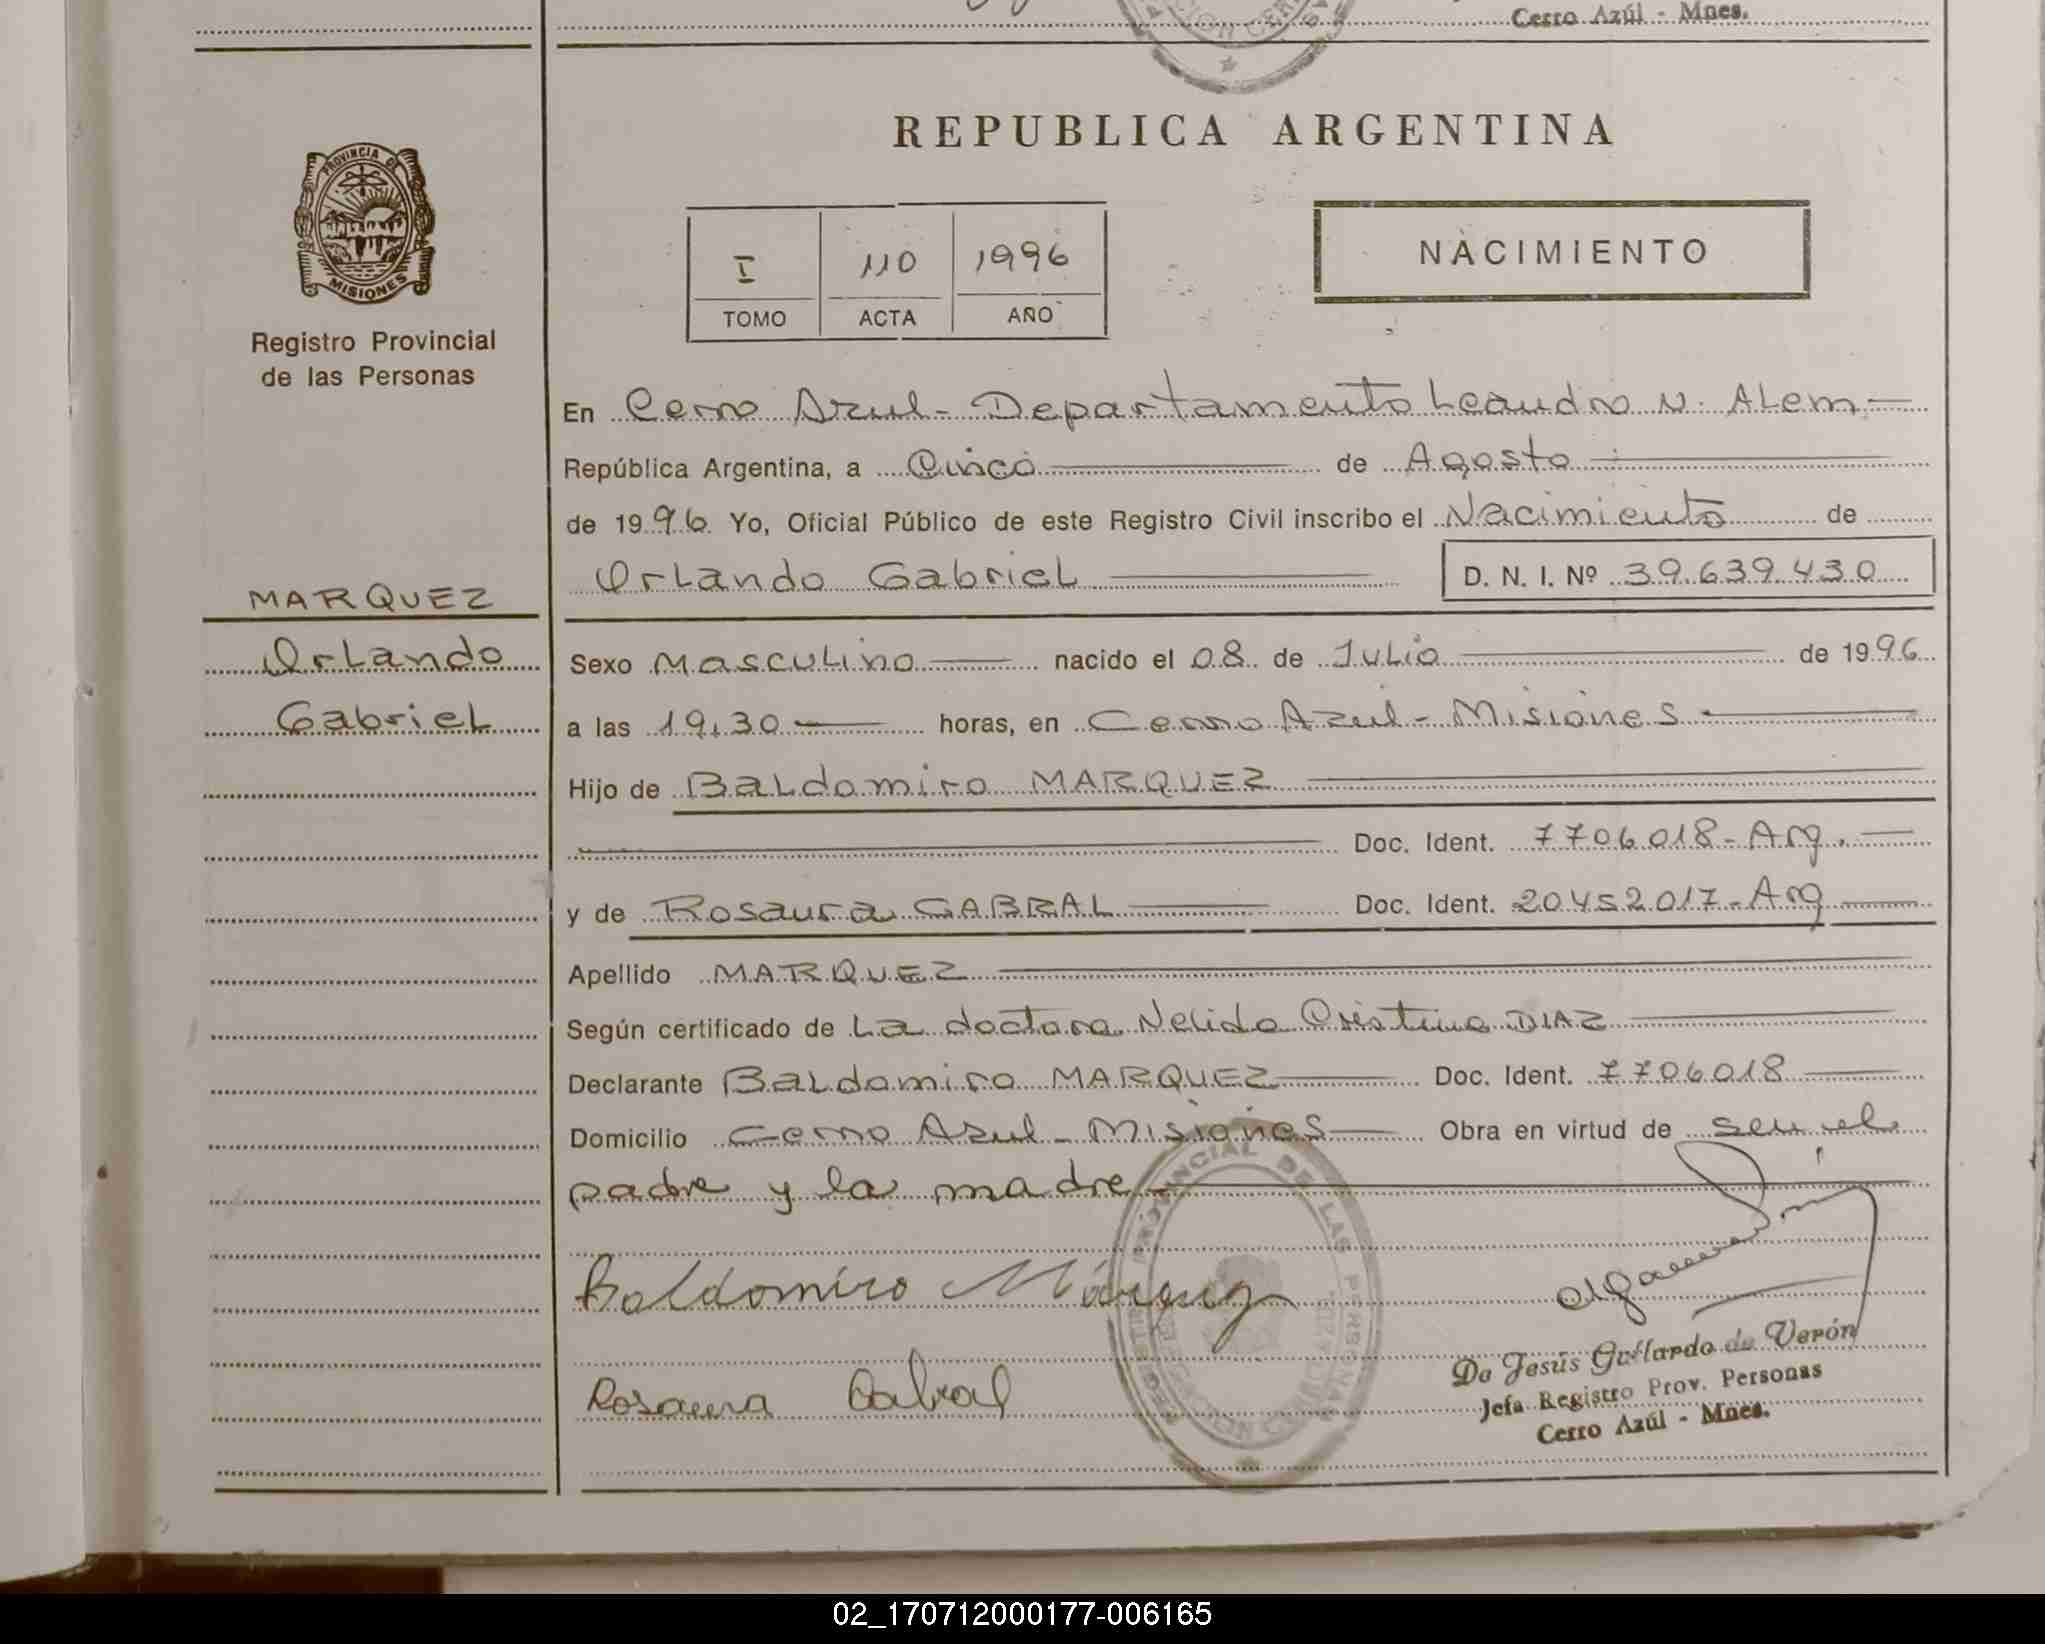 Cerro Azúl - Mnes.
REPUBLICA ARGENTINA
PROVINCIA DE
MISIONES
Registro Provincial
de las Personas
I 110 1996
TOMO ACTA AÑO
NACIMIENTO
En Cerro Azul - Departamento Leandro N. ALem
República Argentina, a Cinco de Agosto
de 1996 Yo, Oficial Público de este Registro Civil inscribo el Nacimiento de
OrLando GabrieL D. N. I. Nº 39.639.430
MARQUEZ
OrLando
GabrieL
Sexo MascuLino nacido el 08 de JuLio de 1996
a las 19,30 horas, en Cerro Azul - Misiones
Hijo de BaLdomiro MARQUEZ
Doc. Ident. 7706018 - Arg.
y de Rosaura CABRAL Doc. Ident. 20452017 - Arg
Apellido MARQUEZ
Según certificado de La doctora Nelida Cristina DIAZ
Declarante BaLdomiro MARQUEZ Doc. Ident. 7706018
Domicilio Cerro Azul - Misiones Obra en virtud de ser el
padre y la madre
Baldomiro Márquez
Rosaura Cabral
REGISTRO PROVINCIAL DE LAS PERSONAS
Do Jesús Gallardo de Verón
Jefa Registro Prov. Personas
Cerro Azúl - Mnes.
02_170712000177-006165